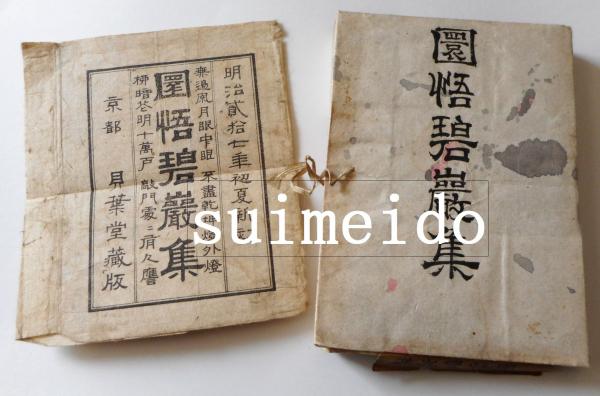 明治貳拾七年初夏新
無邊風月眼中眼 不盡乾坤燈外燈
圜悟碧巖集
柳暗花明十萬戶 敲門處〻有人譍
京都 貝葉堂藏版
圜悟碧巖集
suimeido